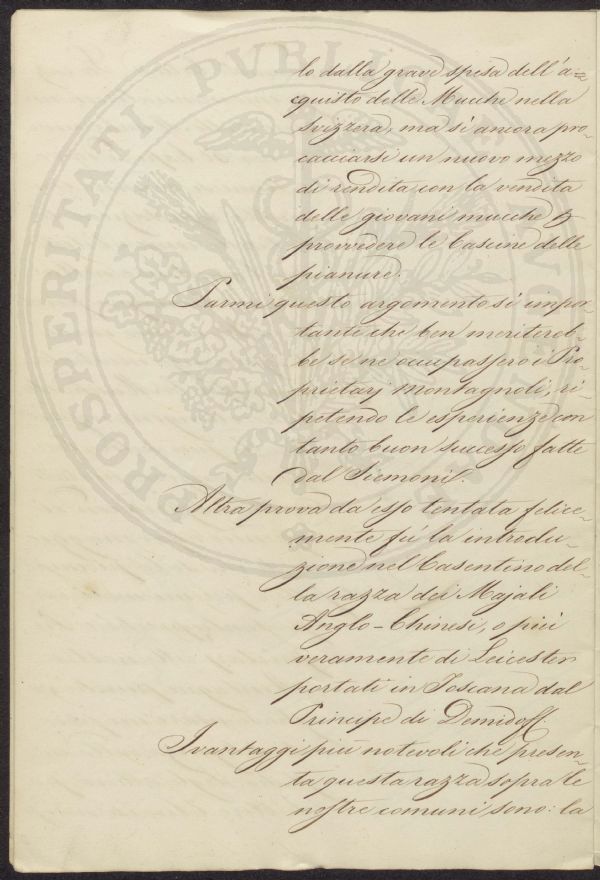 PROSPERITATI PVBLICAE
lo dalla grave spesa dell'a=
cquisto delle Mucche nella
Svizzera, ma sì ancora pro-
cacciarsi un nuovo mezzo
di rendita con la vendita
delle giovani mucche p
provvedere le Cascine delle
pianure.
Parmi questo argomento sì impor-
tante che ben meritereb-
be se ne occupassero i Pro-
prietarj montagnoli, ri-
petendo le esperienze con
tanto buon successo fatte
dal Siemoni.
Altra prova da esso tentata felice-
mente fù la introdu-
zione nel Casentino del-
la razza dei Majali
Anglo-Chinesi, o più
veramente di Leicester
portati in Toscana dal
Principe di Demidoff.
I vantaggi più notevoli che presen-
ta questa razza sopra le
nostre comuni, sono: la